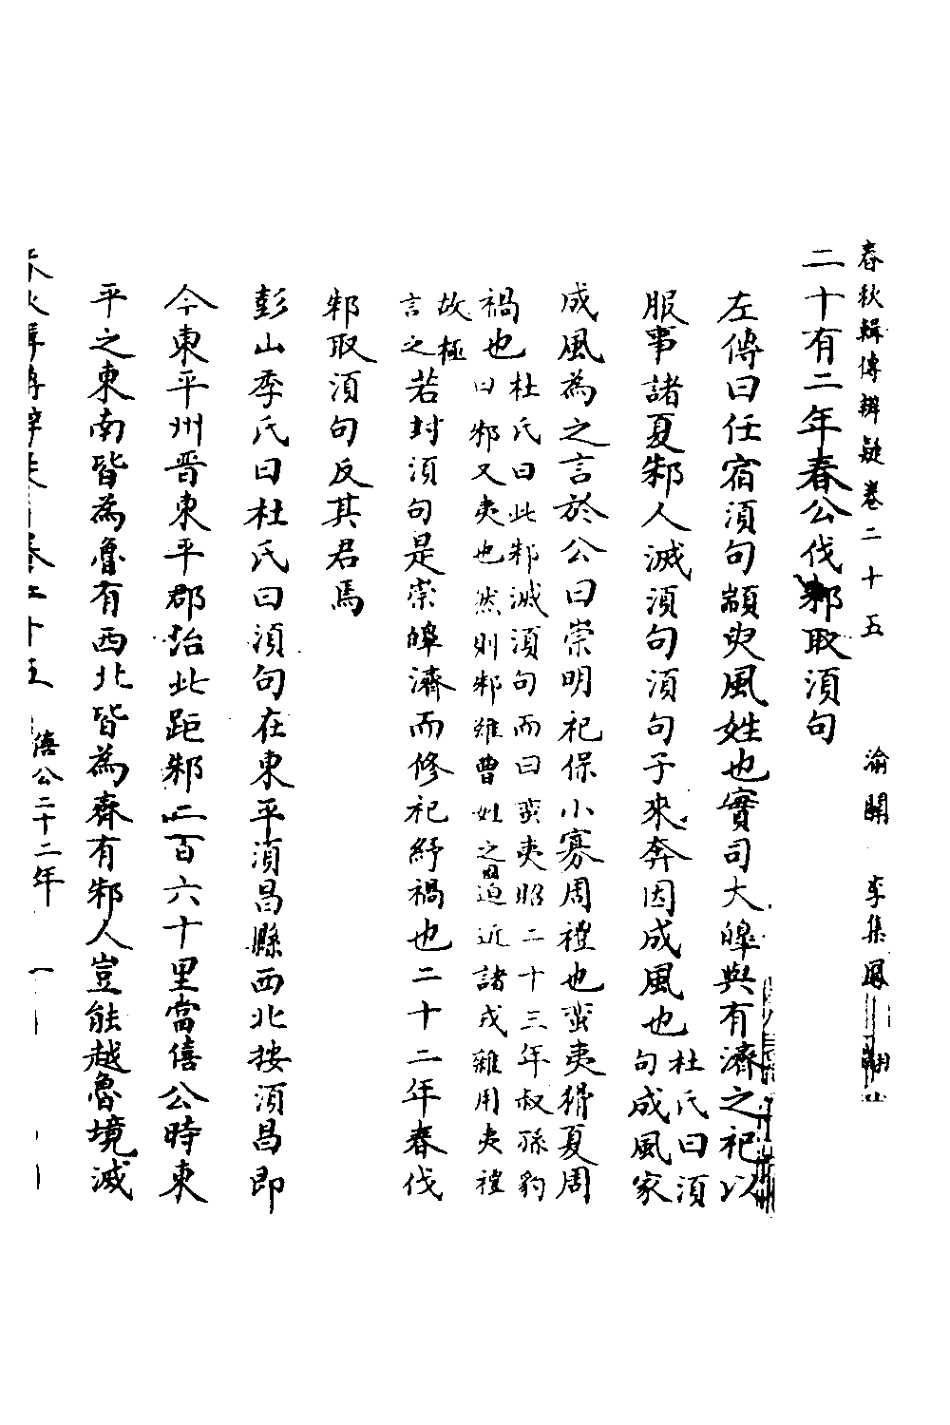 春秋輯傳辨疑卷二十五 渝關 李集鳳 翽
二十有二年春公伐邾取須句
左傳曰任宿須句顓臾風姓也實司大皞與有濟之祀以
服事諸夏邾人滅須句須句子來奔因成風也杜氏曰須
句成風家
成風為之言於公曰崇明祀保小寡周禮也蠻夷猾夏周
禍也杜氏曰此邾滅須句而曰蠻夷昭二十三年叔孫豹
曰邾又夷也然則邾雖曹姓之國迫近諸戎雜用夷禮
故極
言之若封須句是崇皞濟而修祀紓禍也二十二年春伐
邾取須句反其君焉
彭山季氏曰杜氏曰須句在東平須昌縣西北按須昌即
今東平州晋東平郡治此距邾二百六十里當僖公時東
平之東南皆為魯有西北皆為齊有邾人豈能越魯境滅
春秋輯傳辨疑卷二十五 僖公二十二年 一